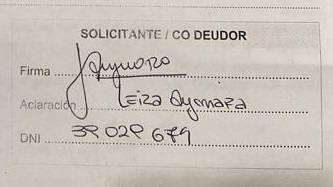 SOLICITANTE / CO DEUDOR
Firma Aymara
Aclaración Leiza Aymara
DNI 39 029 679